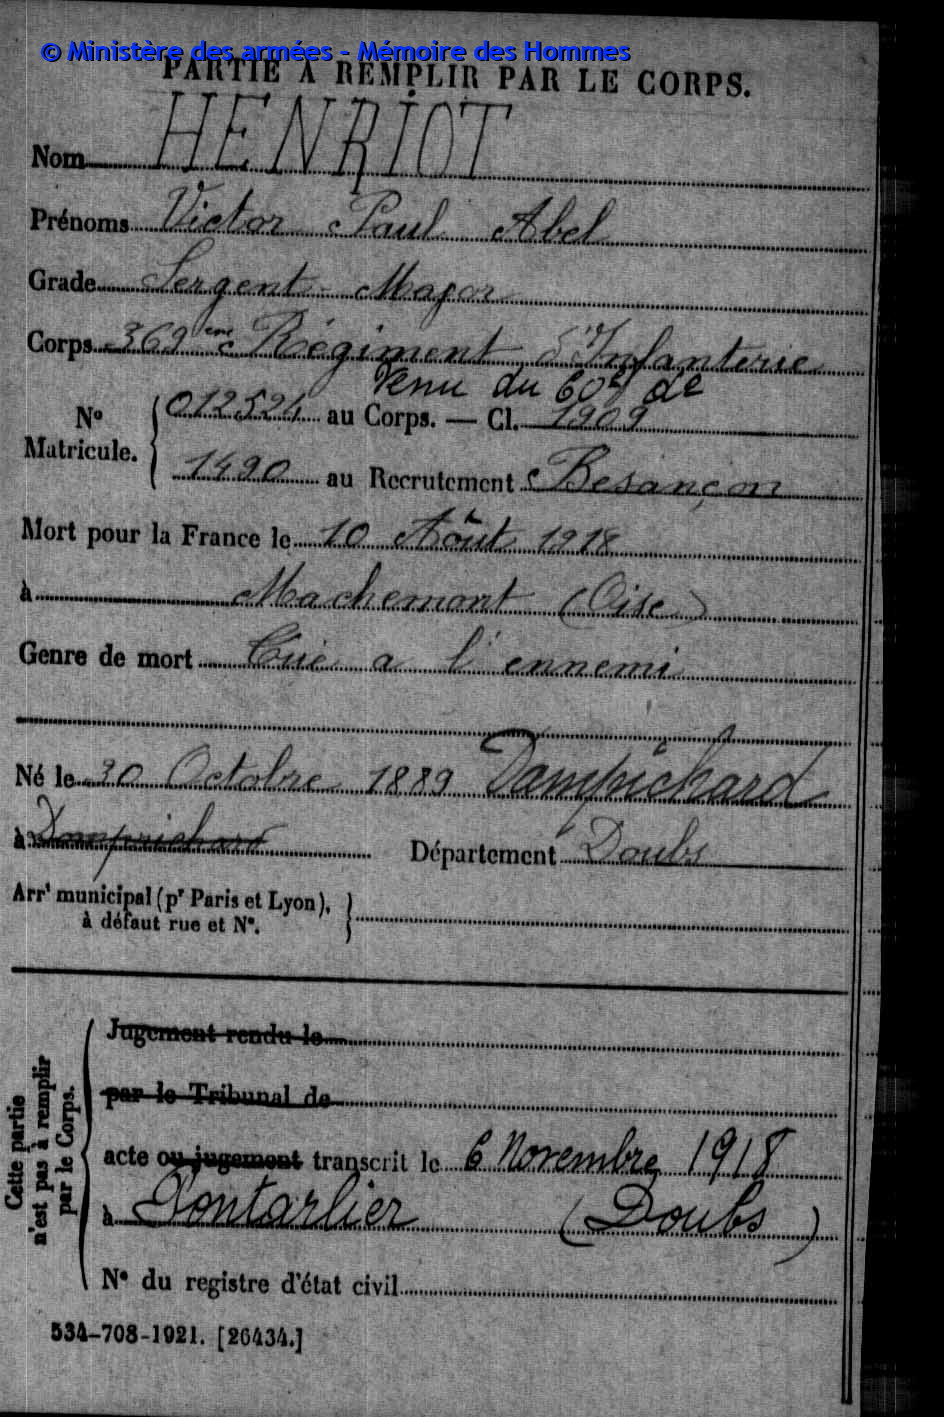 © Ministère des armées - Mémoire des Hommes
PARTIE À REMPLIR PAR LE CORPS.
Nom HENRIOT
Prénoms Victor Paul Abel
Grade Sergent-Major
Corps 369ème Régiment d'Infanterie
Venu du 60e de
No Matricule. 012524 au Corps. — Cl. 1909
1490 au Recrutement Besançon
Mort pour la France le 10 Août 1918
à Machemont (Oise)
Genre de mort Tué a l'ennemi
Né le 30 Octobre 1889 Dampichard
à Damprichard Département Doubs
Arrt municipal (pr Paris et Lyon),
à défaut rue et No.
Cette partie n'est pas à remplir par le Corps.
Jugement rendu le
par le Tribunal de
acte ou jugement transcrit le 6 Novembre 1918
à Pontarlier (Doubs)
No du registre d'état civil
534-708-1921. [26434.]